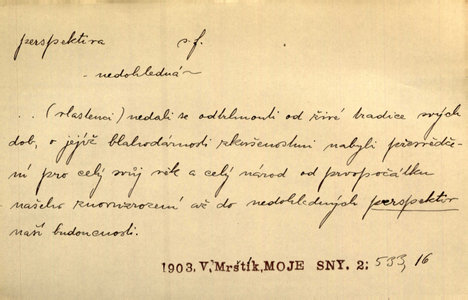 perspektiva s.f.
- nedohledná ~
... (vlastenci) nedali se odtrhnouti od živé tradice svých
dob, o jejíž blahodárnosti zkušenostmi nabyli přesvědče-
ní pro celý svůj věk a celý národ od prvopočátku
našeho znovuzrození až do nedohledných perspektiv
naší budoucnosti.
1903. V. Mrštík, MOJE SNY. 2; 533, 16